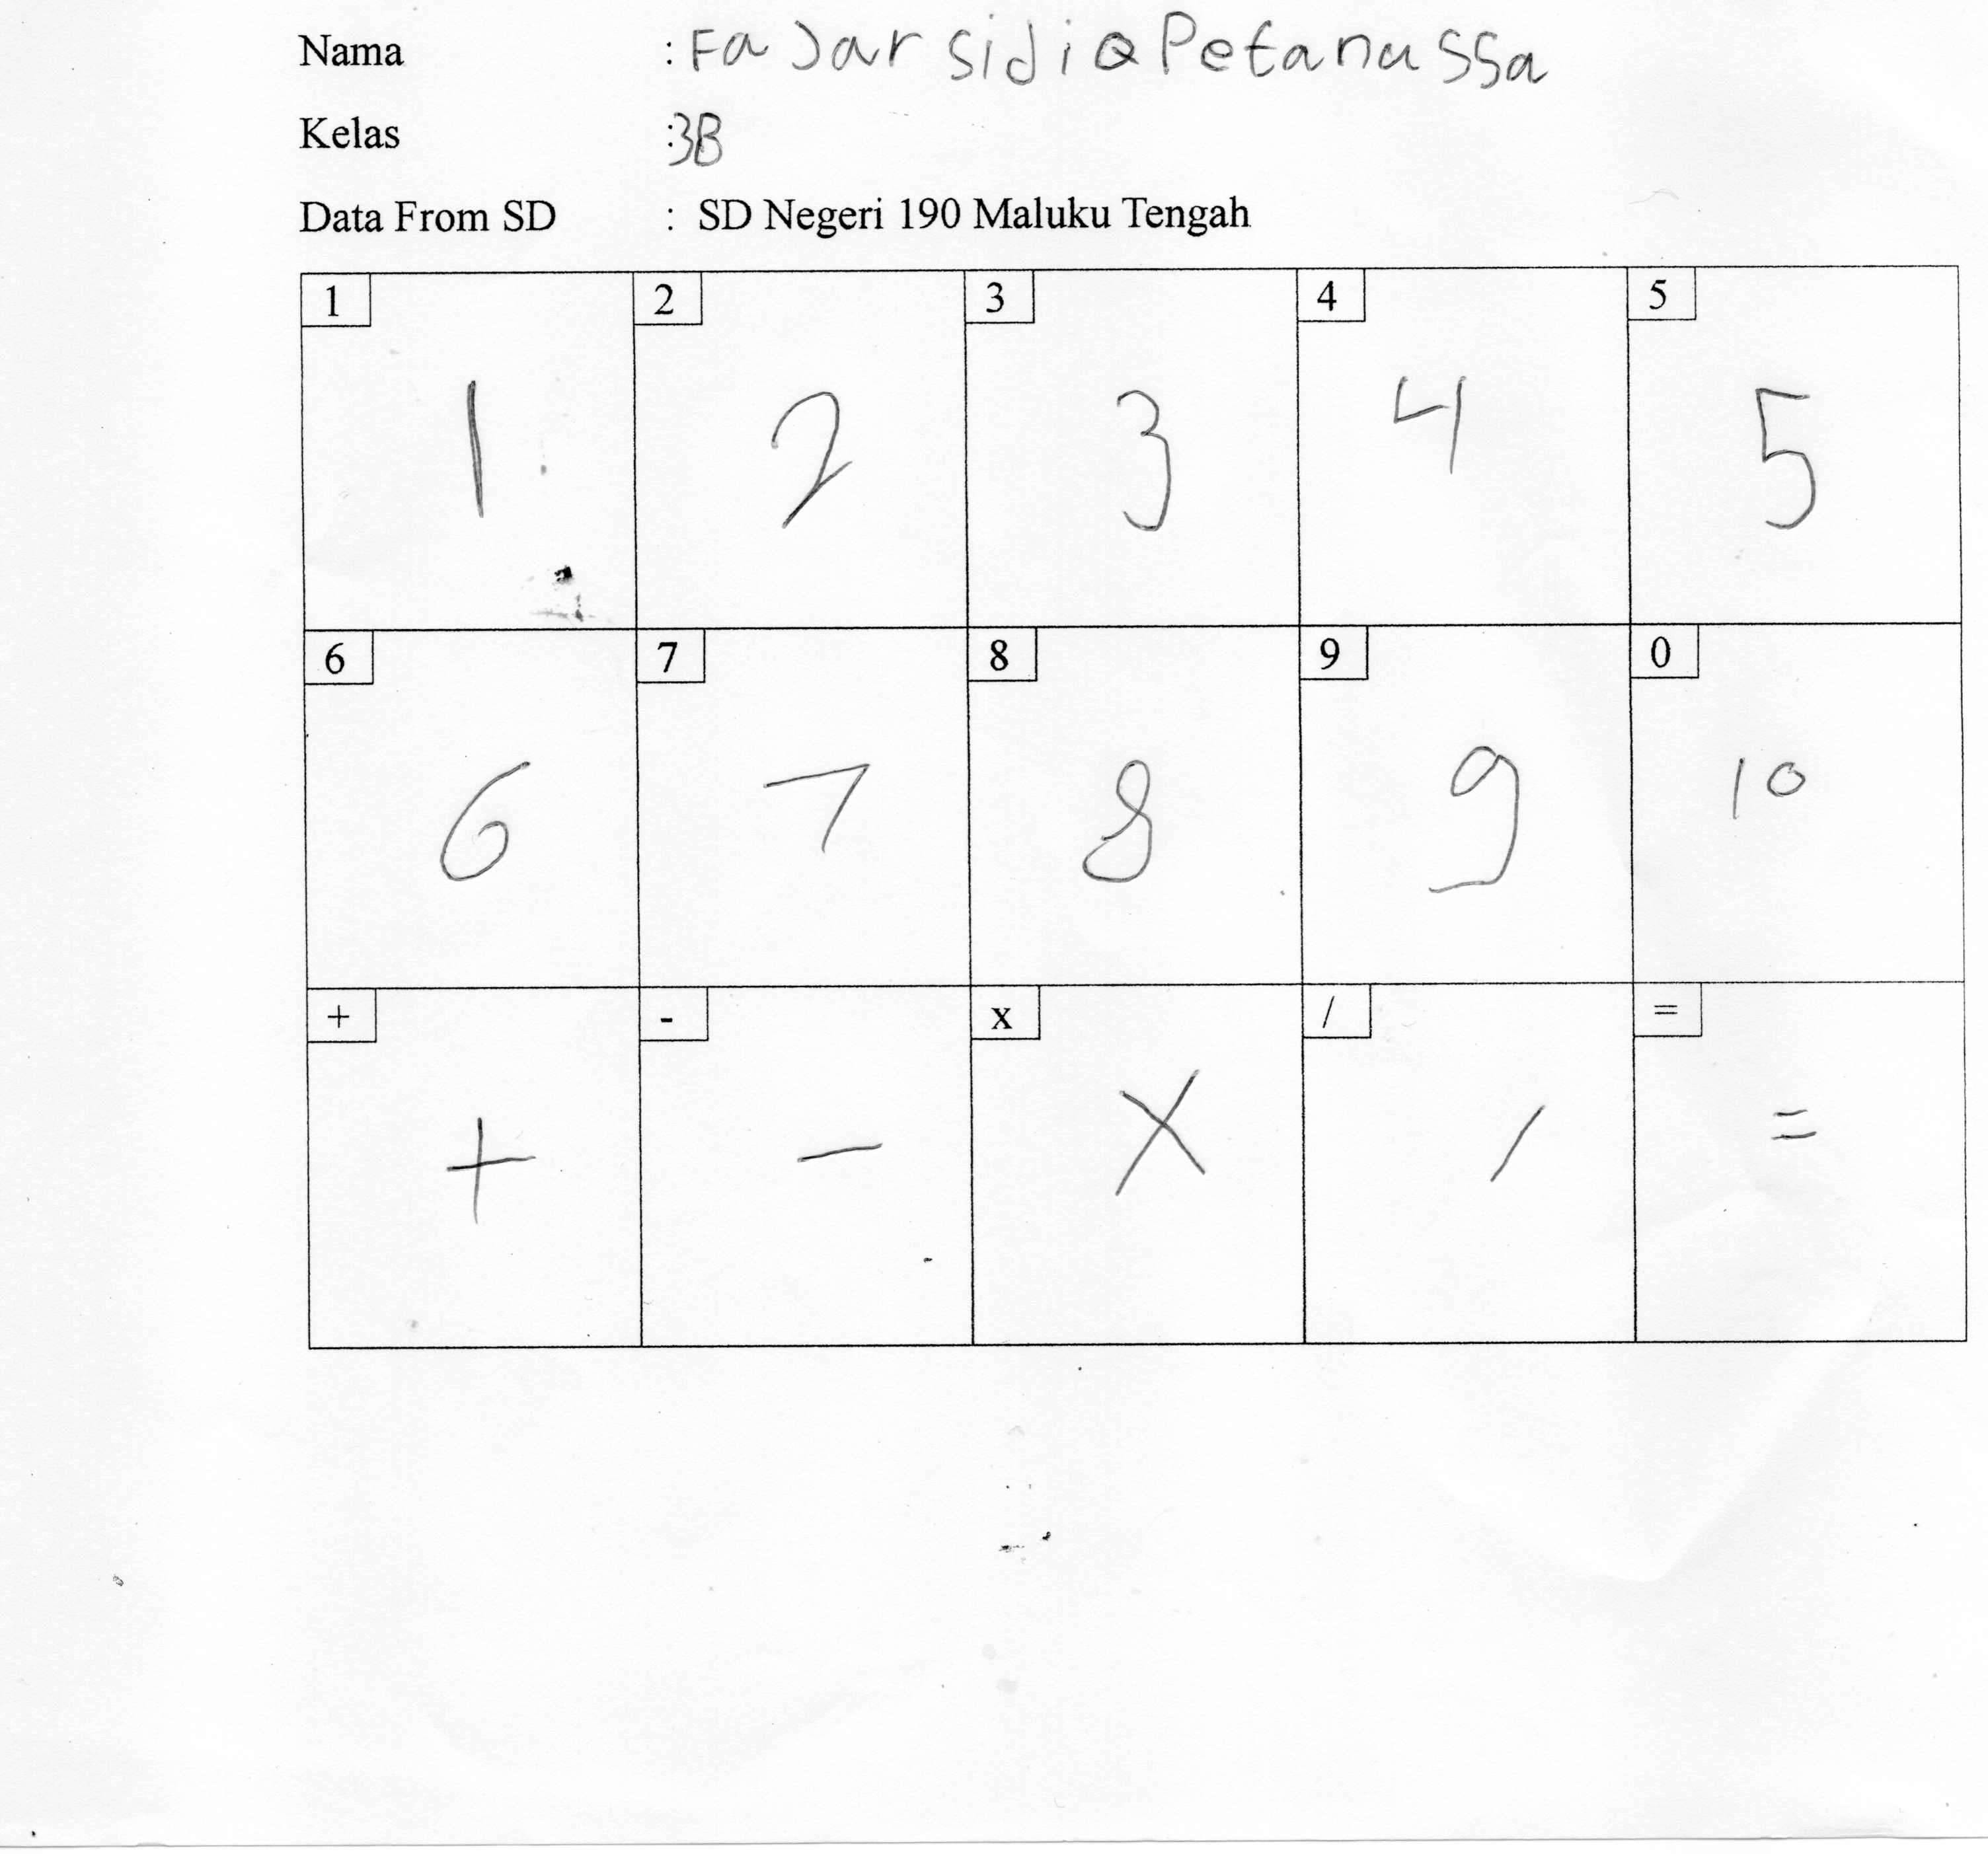 Nama : Fajar sidiq Petanussa
Kelas : 3B
Data From SD : SD Negeri 190 Maluku Tengah
1 2 3 4 5
1 2 3 4 5
6 7 8 9 0
6 7 8 9 10
+ - x / =
+ - x / =